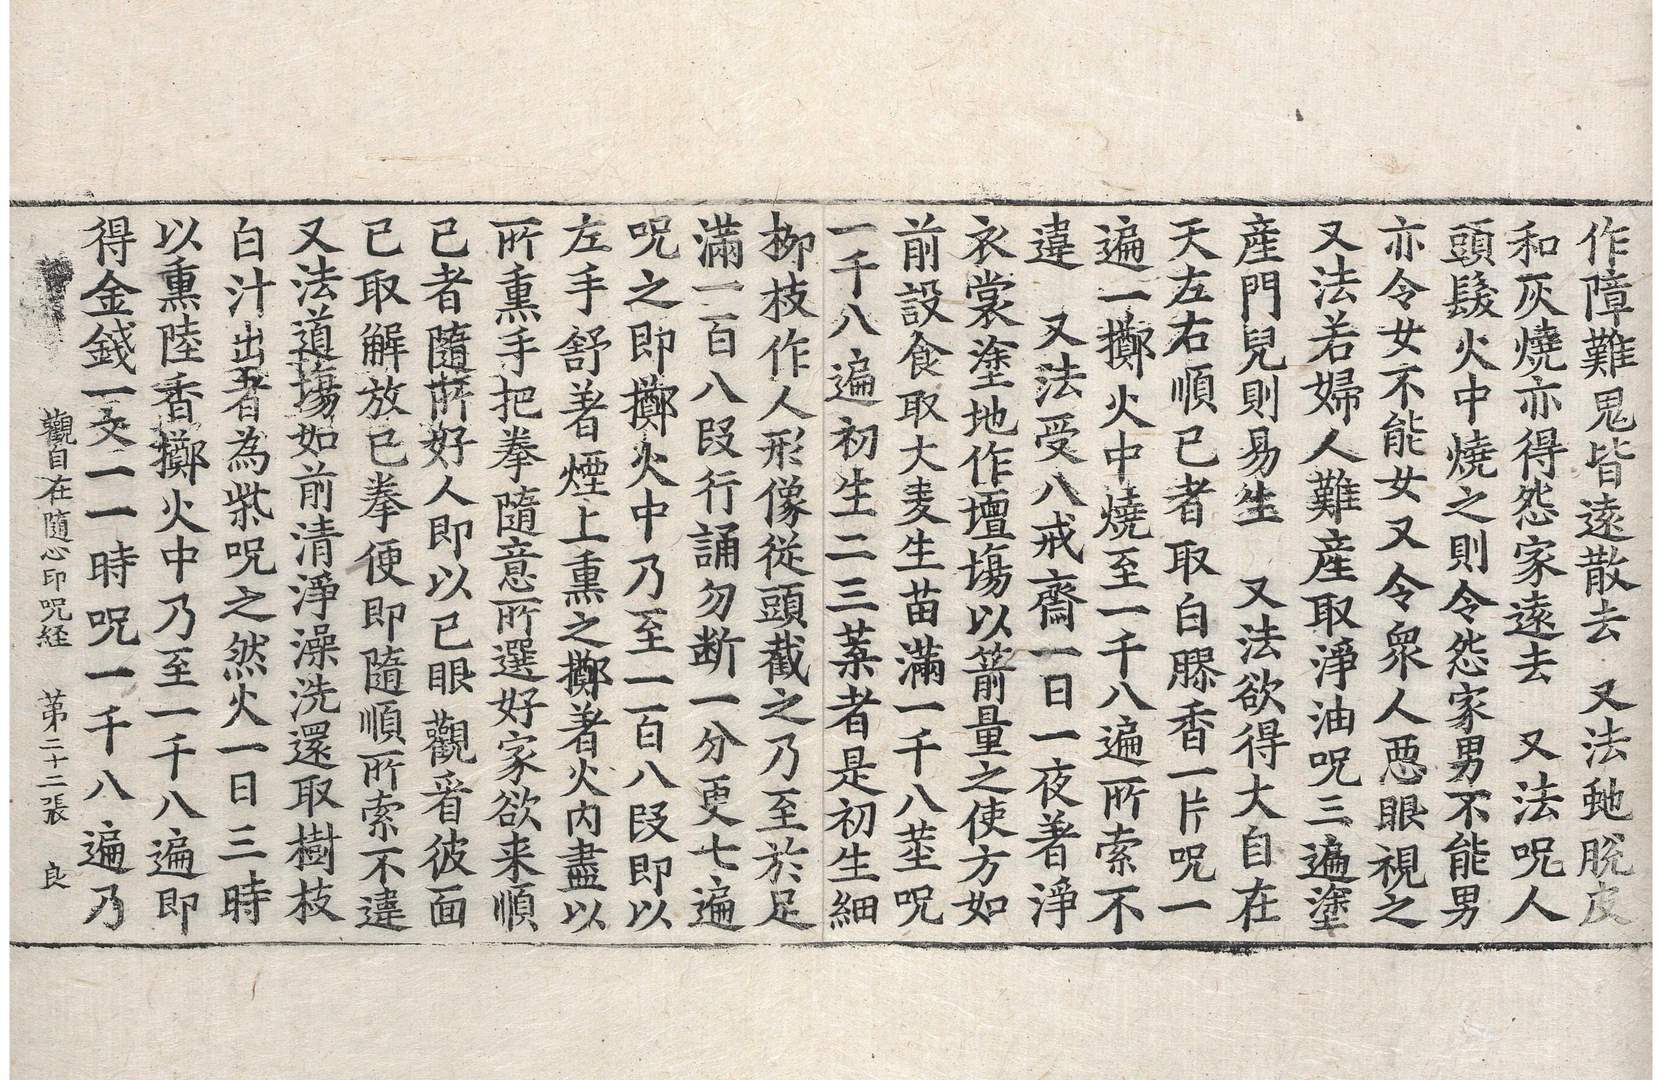 作障難鬼皆遠散去 又法虵脫皮
和灰燒亦得怨家遠去 又法呪人
頭髮火中燒之則令怨家男不能男
亦令女不能女又令衆人惡眼視之
又法若婦人難産取淨油呪三遍塗
産門兒則易生 又法欲得大自在
天左右順已者取白膠香一片呪一
遍一擲火中燒至一千八遍所索不
違 又法受八戒齋一日一夜著淨
衣裳塗地作壇場以箭量之使方如
前設食取大麦生苗滿一千八莖呪
一千八遍初生二三葉者是初生細
柳枝作人形像從頭截之乃至於足
滿一百八段行誦勿斷一分更七遍
呪之即擲火中乃至一百八段即以
左手舒著煙上熏之擲著火內盡以
所熏手把拳隨意所選好家欲来順
已者隨所好人即以已眼觀看彼面
已取解放已拳便即隨順所索不違
又法道場如前清淨澡洗還取樹枝
白汁出者為柴呪之然火一日三時
以熏陸香擲火中乃至一千八遍即
得金錢一文一一時呪一千八遍乃
觀自在隨心印呪経 第二十二張 良